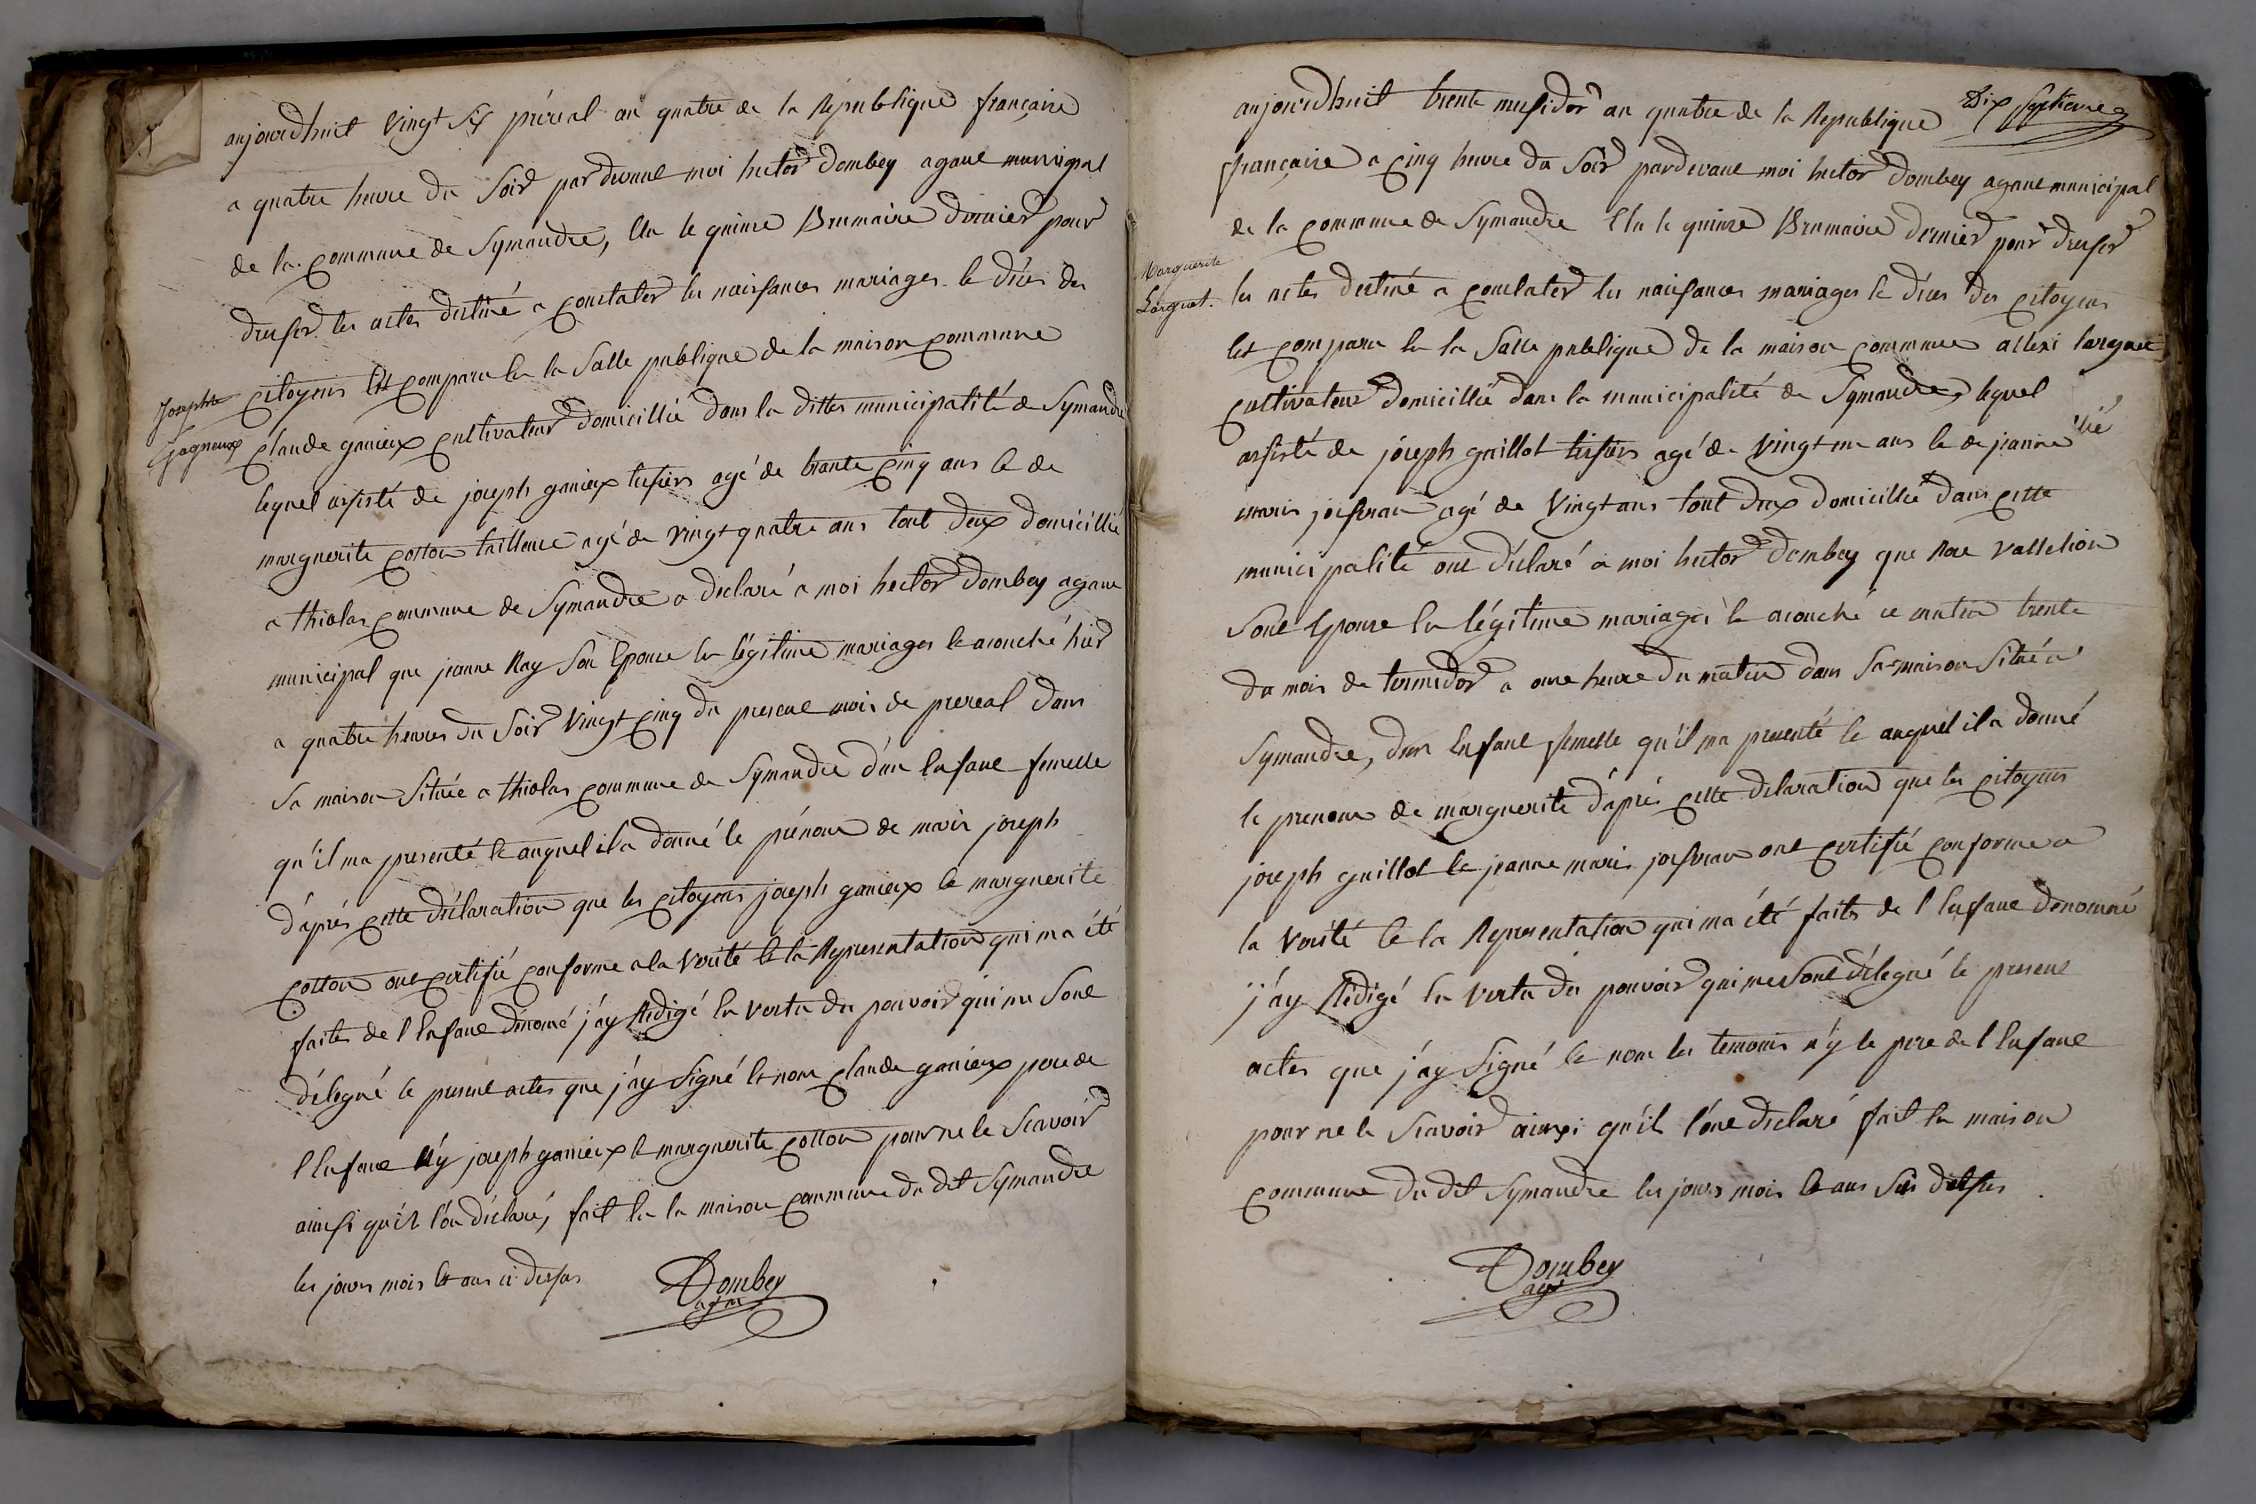 aujourdhuit vingt six préréal an quatre de la Republique française
a quatre heure du Soir par devant moi hector Dombey agant municipal
de la commune de Symandre, Elu le quinze Brumaire dernier pour
dresser les actes destiné a constater les naissances mariages et décès des
citoyens Est comparu en la Salle publique de la maison commune
Josephte
Gagneux
claude ganieux cultivateur domicillié dans la ditte municipalité de Symandre
lequel assisté de joseph ganieux tissiers agé de trante cinq ans et de
marguerite cotton tailleuse agé de vingt quatre ans tout deux domicillié
a thiolas commune de Symandre a déclaré a moi hector Dombey agant
municipal que jeanne Ray Son Epouse en légitime mariages et acouché hier
a quatre heures du Soir vingt cinq du presant mois de prereal dans
Sa maison Située a thiolas commune de Symandre d'un Enfant femelle
qu'il ma presenté et auquel il a donné le prénom de marie joseph
d'après cette déclaration que les citoyens joseph ganieux et marguerite
cotton ont certifié conforme a la vérité et la Representation qui ma été
faites de l Enfant dénomé j'ay Rédigé En vertu du pouvoir qui me Sont
délegué le presant actes que j'ay Signé et nom claude ganieux pere de
l Enfant N'y joseph ganieux et marguerite cotton pour ne le Scavoir
ainssi qu'il l'on déclaré, fait En la maison commune du dit Symandre
les jours mois et ans ci dessus
Dombey
agm
Dix septieme
aujourdhuit trente messidor an quatre de la Republique
française a cinq heure du Soir pardevant moi hector Dombey agant municipal
de la commune de Symandre Elu le quinze Brumaire dernier pour dresser
Marguerite
Larguet.
les actes destiné a constater les naissances mariages et décès des citoyens
Est comparu En la Salle publique de la maison commune allexi
cultivateur domicillié dans la municipalité de Symandre, lequel
assisté de joseph guillot tissiers agé de vingt un ans et de jeanne
marie josseran agé de vingt ans tout deux domicillié dans cette
municipalité ont déclaré a moi hector Dombey que
Sont Epouse En légitime mariages et acouché ce matin trente
du mois de termidor a onze heure du matin dans Sa maison Située a
Symandre, d'un Enfant femelle qu'il ma presenté et auquel il a donné
le prenom de marguerite d'après cette déclaration que les citoyens
joseph guillot et jeanne marie josseran ont certifié conforme a
la vérité et la Representation qui ma été faites de l Enfant dénommé
j'ay Rédigé En vertu du pouvoir qui me Sont délegué le presant
actes que j'ay Signé et nom les temoins n'y le pere de l Enfant
pour ne le Scavoir ainsi qu'il l'ont déclaré fait En maison
commune du dit Symandre les jours mois et ans Sus dessus
Dombey
agt